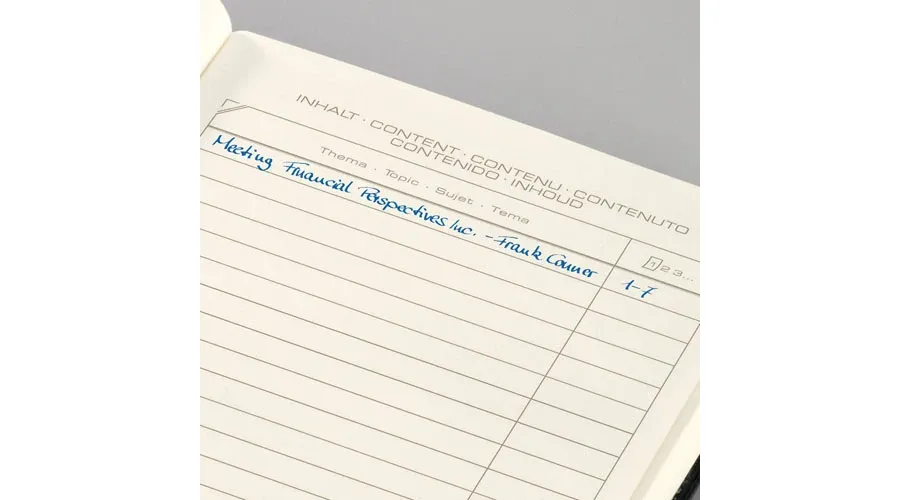 INHALT · CONTENT · CONTENU · CONTENUTO
CONTENIDO · INHOUD
Thema · Topic · Sujet · Tema
1 2 3...
Meeting Financial Perspectives Inc. - Frank Conner
1-7